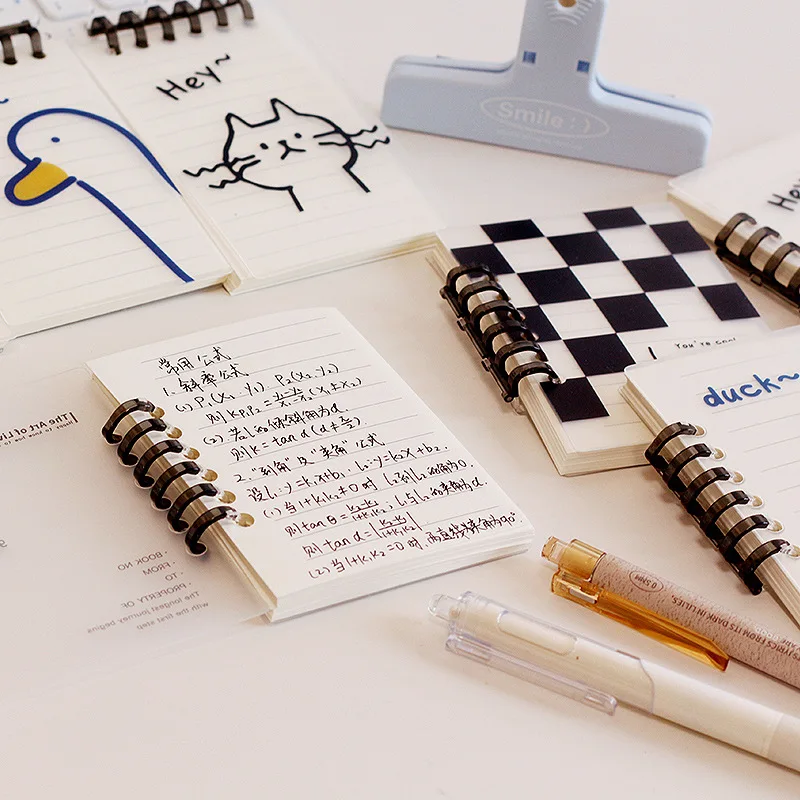 Hey~
Smile :)
You're cool
duck~
常用公式
1. 斜率公式
(1) P₁(x₁·y₁) P₂(x₂·y₂)
则 kP₁P₂ = (y₂-y₁)/(x₁-x₂) (x₁≠x₂)
(2) 若l的倾斜角为α
则k=tanα(α≠π/2)
2. "到角"及"夹角"公式
设l₁:y=k₁x+b₁, l₂:y=k₂x+b₂,
(1) 当1+k₁k₂≠0时 l₁到l₂的角为θ,
则tanθ=(k₂-k₁)/(1+k₁k₂); l₁与l₂的夹角为α.
则tanα=|(k₂-k₁)/(1+k₁k₂)|
(2) 当1+k₁k₂=0时, 两直线夹角为90°.
The Art of Li
· BOOK NO
· FROM
· TO
· PROPERTY OF
The longest journey begins
with the first step
0.5mm
LYRICS FROM ITS DARK IN LILIES,